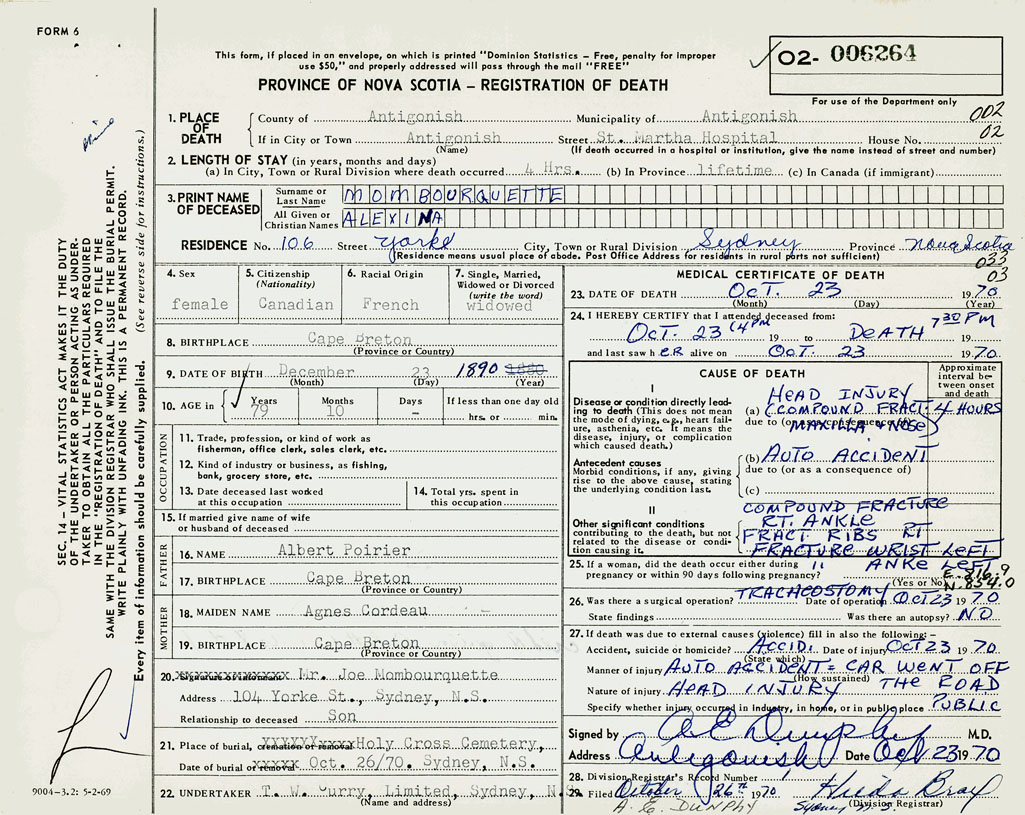 FORM 6
This form, if placed in an envelope, on which is printed "Dominion Statistics – Free, penalty for improper
use $50," and properly addressed will pass through the mail "FREE"
O2- 006264
PROVINCE OF NOVA SCOTIA – REGISTRATION OF DEATH
For use of the Department only
002
02
1. PLACE OF DEATH
County of Antigonish Municipality of Antigonish
If in City or Town Antigonish Street St. Martha Hospital House No.
(Name) (If death occurred in a hospital or institution, give the name instead of street and number)
2. LENGTH OF STAY (in years, months and days)
(a) In City, Town or Rural Division where death occurred 4 Hrs. (b) In Province lifetime (c) In Canada (if immigrant)
3. PRINT NAME OF DECEASED
Surname or Last Name MOMBOURQUETTE
All Given or Christian Names ALEXINA
RESIDENCE No. 106 Street Yorke City, Town or Rural Division Sydney Province Nova Scotia
(Residence means usual place of abode. Post Office Address for residents in rural parts not sufficient)
033
03
SEC. 14 – VITAL STATISTICS ACT MAKES IT THE DUTY
OF THE UNDERTAKER OR PERSON ACTING AS UNDER-
TAKER TO OBTAIN ALL THE PARTICULARS REQUIRED
IN THE "REGISTRATION OF DEATH" AND TO FILE THE
SAME WITH THE DIVISION REGISTRAR WHO SHALL ISSUE THE BURIAL PERMIT.
WRITE PLAINLY WITH UNFADING INK. THIS IS A PERMANENT RECORD.
Every item of information should be carefully supplied. (See reverse side for instructions.)
4. Sex
female
5. Citizenship
(Nationality)
Canadian
6. Racial Origin
French
7. Single, Married,
Widowed or Divorced
(write the word)
widowed
8. BIRTHPLACE Cape Breton
(Province or Country)
9. DATE OF BIRTH December 23 1890 1880
(Month) (Day) (Year)
10. AGE in
Years
79
Months
10
Days
–
If less than one day old
hrs. or min.
OCCUPATION
11. Trade, profession, or kind of work as
fisherman, office clerk, sales clerk, etc.
12. Kind of industry or business, as fishing,
bank, grocery store, etc.
13. Date deceased last worked
at this occupation
14. Total yrs. spent in
this occupation
15. If married give name of wife
or husband of deceased
FATHER
16. NAME Albert Poirier
17. BIRTHPLACE Cape Breton
(Province or Country)
MOTHER
18. MAIDEN NAME Agnes Cordeau
19. BIRTHPLACE Cape Breton
(Province or Country)
20. Mr. Joe Mombourquette
Address 104 Yorke St., Sydney, N.S.
Relationship to deceased Son
21. Place of burial, cremation or removal Holy Cross Cemetery,
Date of burial or removal Oct. 26/70. Sydney, N.S.
22. UNDERTAKER T. W. Curry, Limited, Sydney, N.S.
(Name and address)
9004–3.2: 5-2-69
MEDICAL CERTIFICATE OF DEATH
23. DATE OF DEATH OCT. 23 1970
(Month) (Day) (Year)
24. I HEREBY CERTIFY that I attended deceased from:
OCT. 23 (4 PM 19 to DEATH 7 30 PM 19
and last saw h ER alive on OCT. 23 1970
CAUSE OF DEATH
Approximate interval between onset and death
I
Disease or condition directly leading to death (This does not mean the mode of dying, e.g., heart failure, asthenia, etc. It means the disease, injury, or complication which caused death.)
HEAD INJURY
(a) (COMPOUND FRACT. 4 HOURS
due to (or as a consequence of)
MAXILLA & NOSE)
Antecedent causes
Morbid conditions, if any, giving rise to the above cause, stating the underlying condition last.
(b) AUTO ACCIDENT
due to (or as a consequence of)
(c)
II
Other significant conditions
contributing to the death, but not related to the disease or condition causing it.
COMPOUND FRACTURE
RT. ANKLE
FRACT RIBS RT
FRACTURE WRIST LEFT
" ANKE LEFT
25. If a woman, did the death occur either during
pregnancy or within 90 days following pregnancy? (Yes or No)
E. 816.9
N. 854.0
26. Was there a surgical operation? TRACHEOSTOMY Date of operation OCT 23 1970
State findings Was there an autopsy? NO
27. If death was due to external causes (violence) fill in also the following: –
Accident, suicide or homicide? ACCID. Date of injury OCT 23 1970
(State which)
Manner of injury AUTO ACCIDENT = CAR WENT OFF
(How sustained) THE ROAD
Nature of injury HEAD INJURY
Specify whether injury occurred in Industry, in home, or in public place PUBLIC
Signed by A E Dunphy M.D.
Address Antigonish Date Oct 23 1970
28. Division Registrar's Record Number
29. Filed October 26th 1970 Hilda Bray
A. E. DUNPHY Sydney N.S. (Division Registrar)